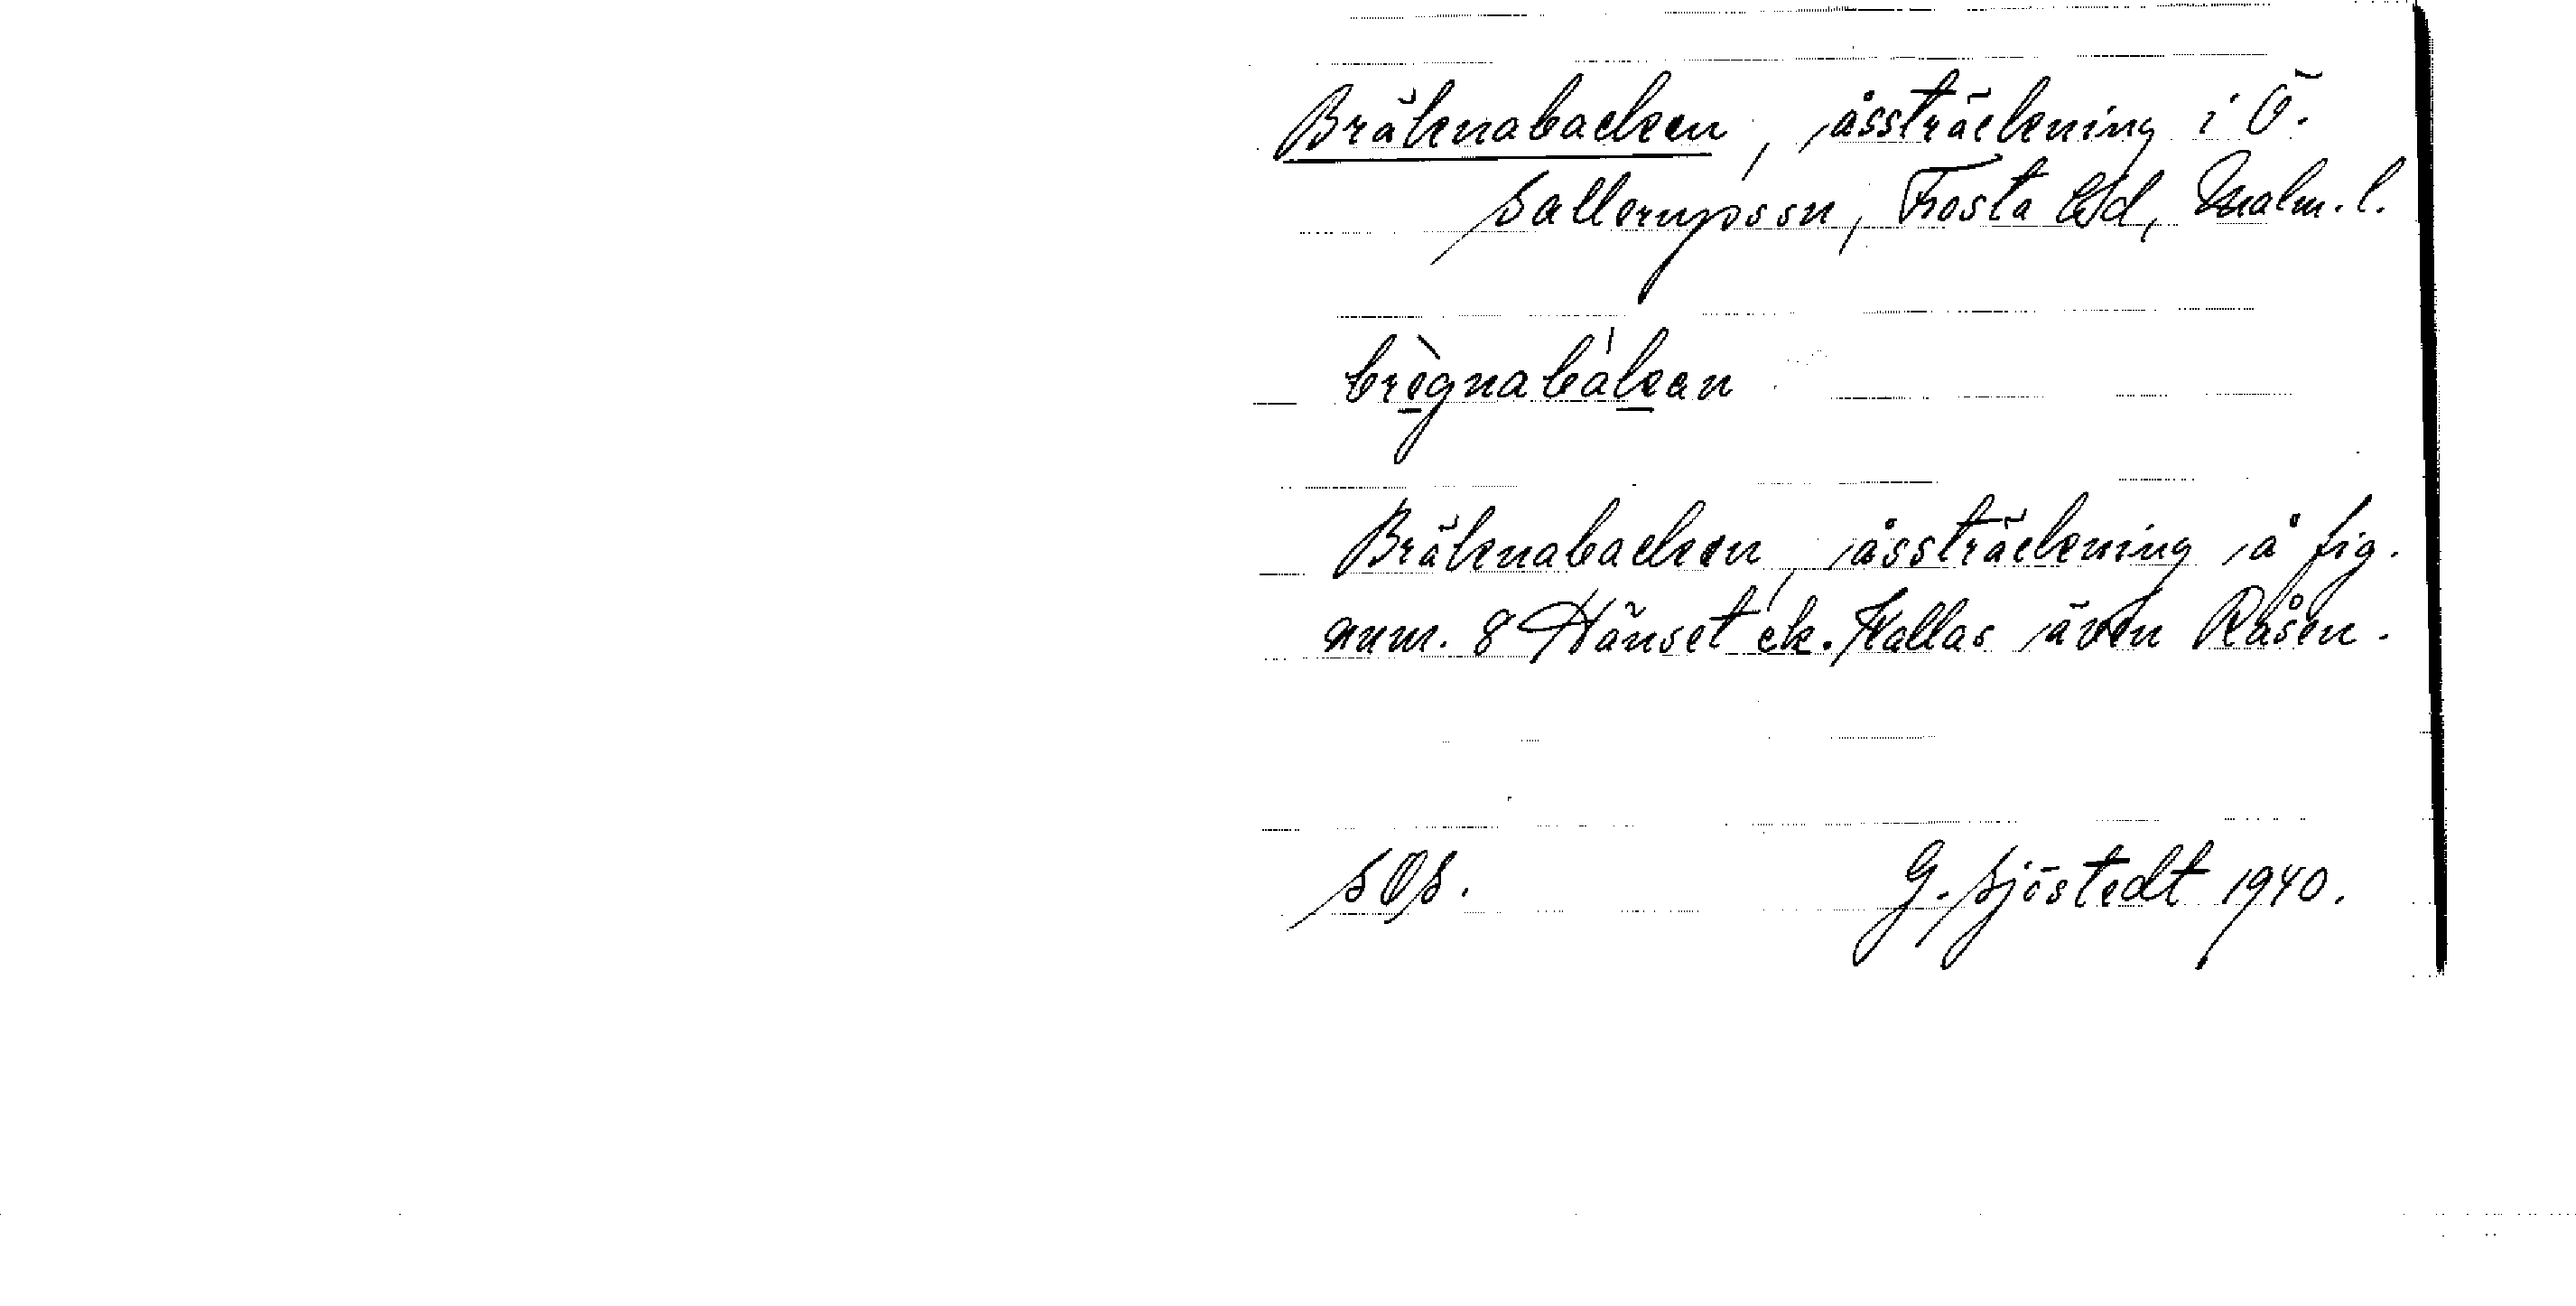 Bräknabacken, åssträckning i Ö.
Sallerupssn, Frosta hd, Malm. l.
brègnabákan
Bräknabacken, åssträckning å fig.
num. 8 Hänset ek. Kallas även Råsen.
SOS. G. Sjöstedt 1940.